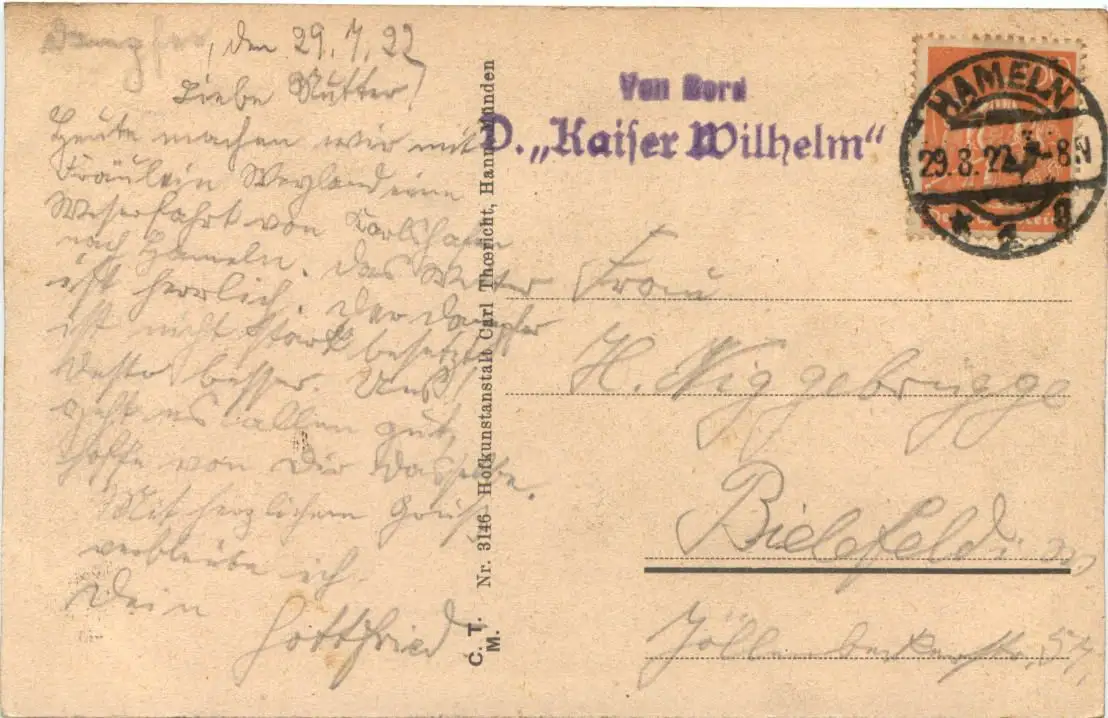 Dampfer, den 29.7.22
Liebe Mutter!
Heute machen wir mit
Fräulein Weyland eine
Weserfahrt von Carlshafen
nach Hameln. Das Wetter
ist herrlich. Der Dampfer
ist nicht stark besetzt,
desto besser. Uns
geht es allen gut,
hoffe von Dir dasselbe.
Mit herzlichem Gruß
verbleibe ich
Dein
Gottfried
C. T.
M.
Nr. 3146 Hofkunstanstalt Carl Thœricht, Hann. Münden
Von Bord
D. „Kaiser Wilhelm“
HAMELN
29.8.22 7-8N
Frau
H. Niggebrügge
Bielefeld i. W.
Jöllenbeckerstr. 57.